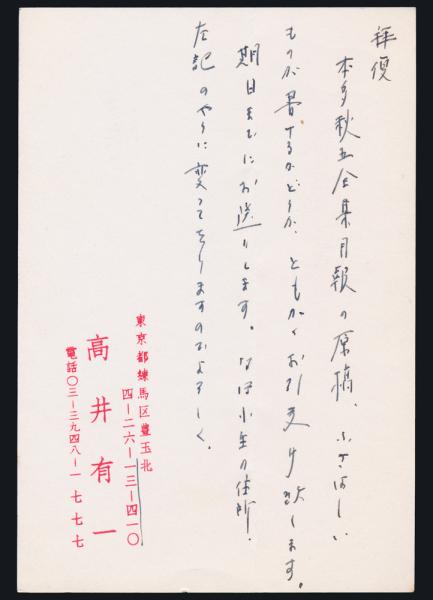 拝復
本多秋五全集月報の原稿、ふさはしい
ものが書けるかどうか、ともかくお引き受け致します。
期日までにお送りします。なほ小生の住所、
左記のやうに変つてをりますのでよろしく。
東京都練馬区豊玉北
四―二六―一三―四一〇
高井有一
電話〇三―三九四八―一七七七